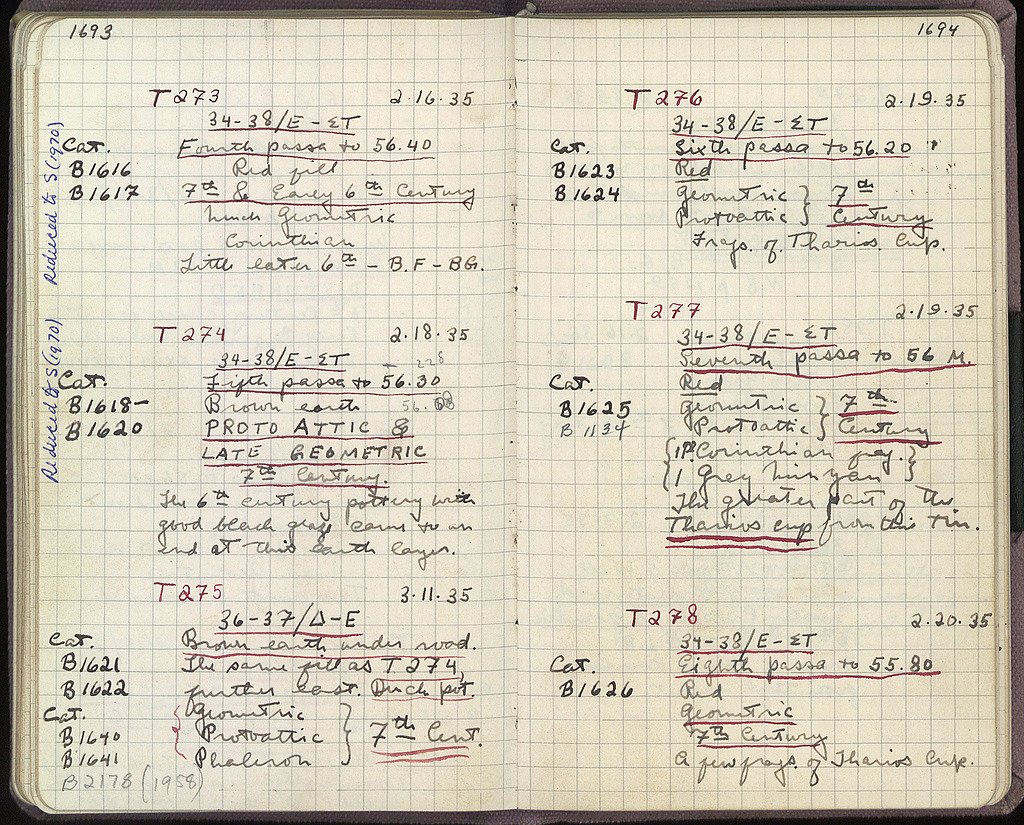 1693
T 273 2·16·35
34-38/E-ΣT
Cat. Fourth passa to 56.40
B1616 Red fill
B1617 7th & Early 6th Century
much Geometric
Corinthian
Little later 6th - B.F - BG.
Reduced to S (1970)
T 274 2·18·35
34-38/E-ΣT
Cat. Fifth passa to 56.30
B1618- Brown earth
B1620 PROTO ATTIC &
LATE GEOMETRIC
7th Century.
The 6th century pottery with
good black glaze came to an
end at this earth layer.
Reduced to S (1970)
T 275 3·11·35
36-37/Δ-E
Cat. Brown earth under road.
B1621 The same fill as T 274
B1622 further east. Duck pot.
Cat. Geometric
B1640 Protoattic } 7th Cent.
B1641 Phaleron
B2178 (1958)
1694
T 276 2·19·35
34-38/E-ΣT
Cat. Sixth passa to 56.20
B1623 Red
B1624 Geometric } 7th
Protoattic } Century
Frags. of Tharios Cup.
T 277 2·19·35
34-38/E-ΣT
Seventh passa to 56 M.
Cat. Red
B1625 Geometric } 7th
B1134 Protoattic } Century
{ 1 P. Corinthian frag. }
{ 1 Grey minyan }
The greater part of the
Tharios cup from this Tin.
T 278 2·20·35
34-38/E-ΣT
Cat. Eighth passa to 55.80
B1626 Red
Geometric
7th Century
A few frags. of Tharios Cup.